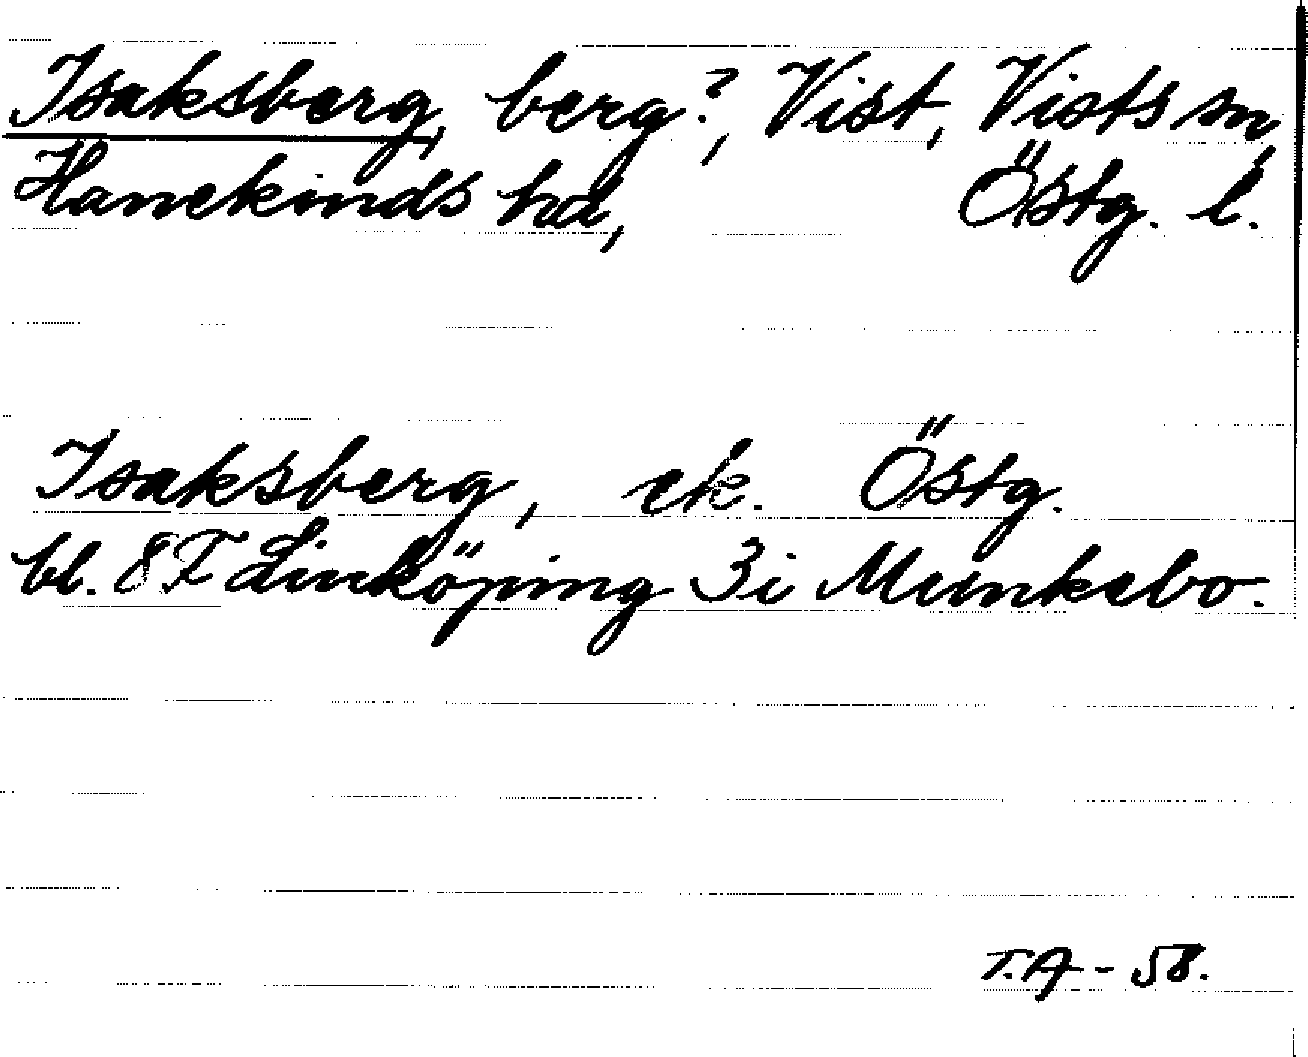 Isaksberg, berg?, Vist, Vists sn,
Hanekinds hd, Östg. l.
Isaksberg, ek. Östg.
bl. 8 F Linköping 3 i Munkebo.
T.A - 58.